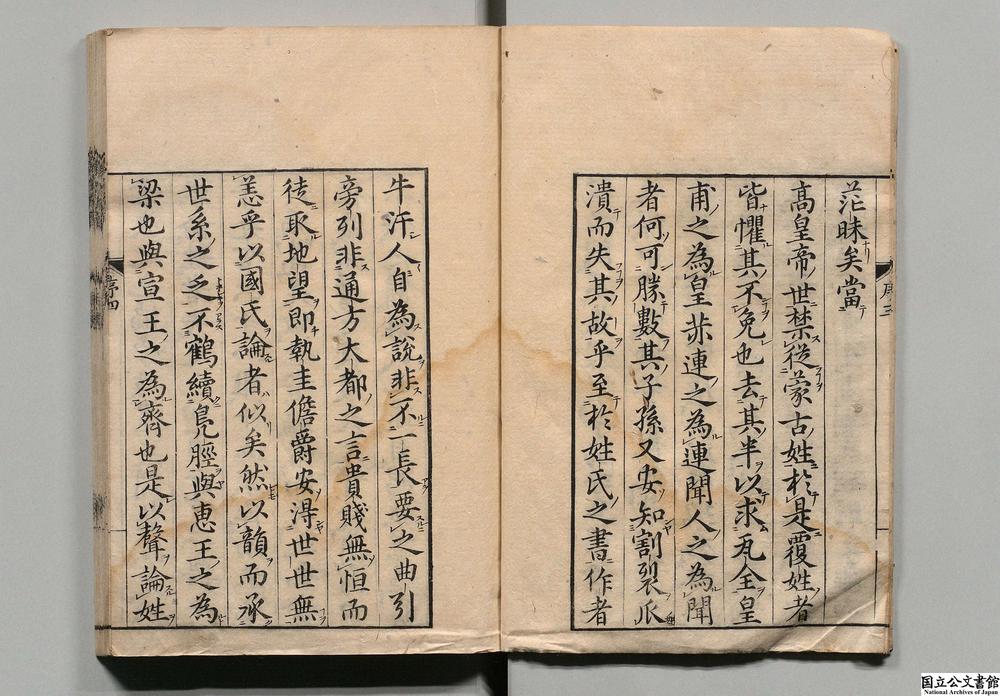 茫昧矣當
高皇帝世禁從蒙古姓於是覆姓者
皆懼其不免也去其半以求瓦全皇
甫之為皇茀連之為連聞人之為聞
者何可勝數其子孫又安知割裂爪
潰而失其故乎至於姓氏之書作者
序三
牛汗人自為說非不一長要之曲引
旁列非通方大都之言貴賤無恒而
徒取地望即執圭儋爵安得世世無
恙乎以國氏論者似矣然以韻而承
世系之乏不鶴續鳧脛與惠王之為
梁也與宣王之為齊也是以聲論姓
序四
国立公文書館
National Archives of Japan